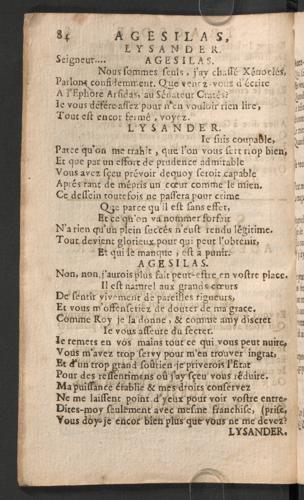 84 AGESILAS,
LYSANDER.
Seigneur.... AGESILAS.
Nous sommes seuls, j'ay chassé Xénoclés,
Parlons confidemment. Que venez-vous d'écrire
A l'Ephore Arsidas, au Sénateur Cratés?
Ie vous défére assez pour n'en vouloir rien lire,
Tout est encor fermé, voyez.
LYSANDER.
Ie suis coupable,
Parce qu'on me trahit, que l'on vous sert trop bien,
Et que par un effort de prudence admirable
Vous avez sçeu prévoir dequoy seroit capable
Aprés tant de mépris un cœur comme le mien.
Ce dessein toutefois ne passera pour crime
Que parce qu'il est sans effet,
Et ce qu'on va nommer forfait
N'a rien qu'un plein succés n'eust rendu légitime.
Tout devient glorieux pour qui peut l'obtenir,
Et qui le manque, est à punir.
AGESILAS.
Non, non, j'aurois plus fait peut-estre en vostre place.
Il est naturel aux grands cœurs
De sentir vivement de pareilles rigueurs,
Et vous m'offenseriez de douter de ma grace.
Comme Roy je la donne, & comme amy discret
Ie vous asseure du secret.
Ie remets en vos mains tout ce qui vous peut nuire,
Vous m'avez trop servy pour m'en trouver ingrat,
Et d'un trop grand soûtien je priverois l'Etat
Pour des ressentimens où j'ay sçeu vous réduire.
Ma puissance établie & mes droits conservez
Ne me laissent point d'yeux pour voir vostre entre-
Dites-moy seulement avec mesme franchise, (prise,
Vous doy-je encor bien plus que vous ne me devez?
LYSANDER.